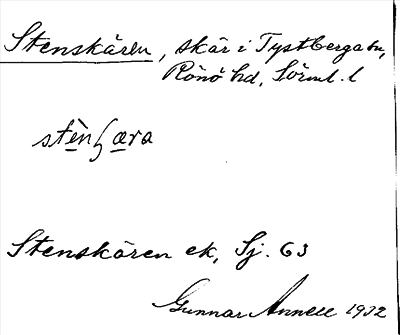 Stenskären, skär i Tystberga sn,
Rönö hd, Sörml. l
stènʃæra
Stenskären ek, Sj. 63
Gunnar Annell 1932